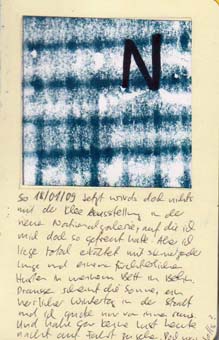 N
So 18/01/09 Jetzt wirds doch nichts
mit der Klee Ausstellung in der
neuen Nationalgalerie, auf die ich
mich doch so gefreut hatte. Aber ich
liege total erkältet mit
und einem fürchterlichen
Husten in meinem Bett in Berlin,
draussen scheint die Sonne, ein
herrlicher Wintertag in der Stadt
und ich gucke nur von
Und habe gar keine Lust heute
nacht auf